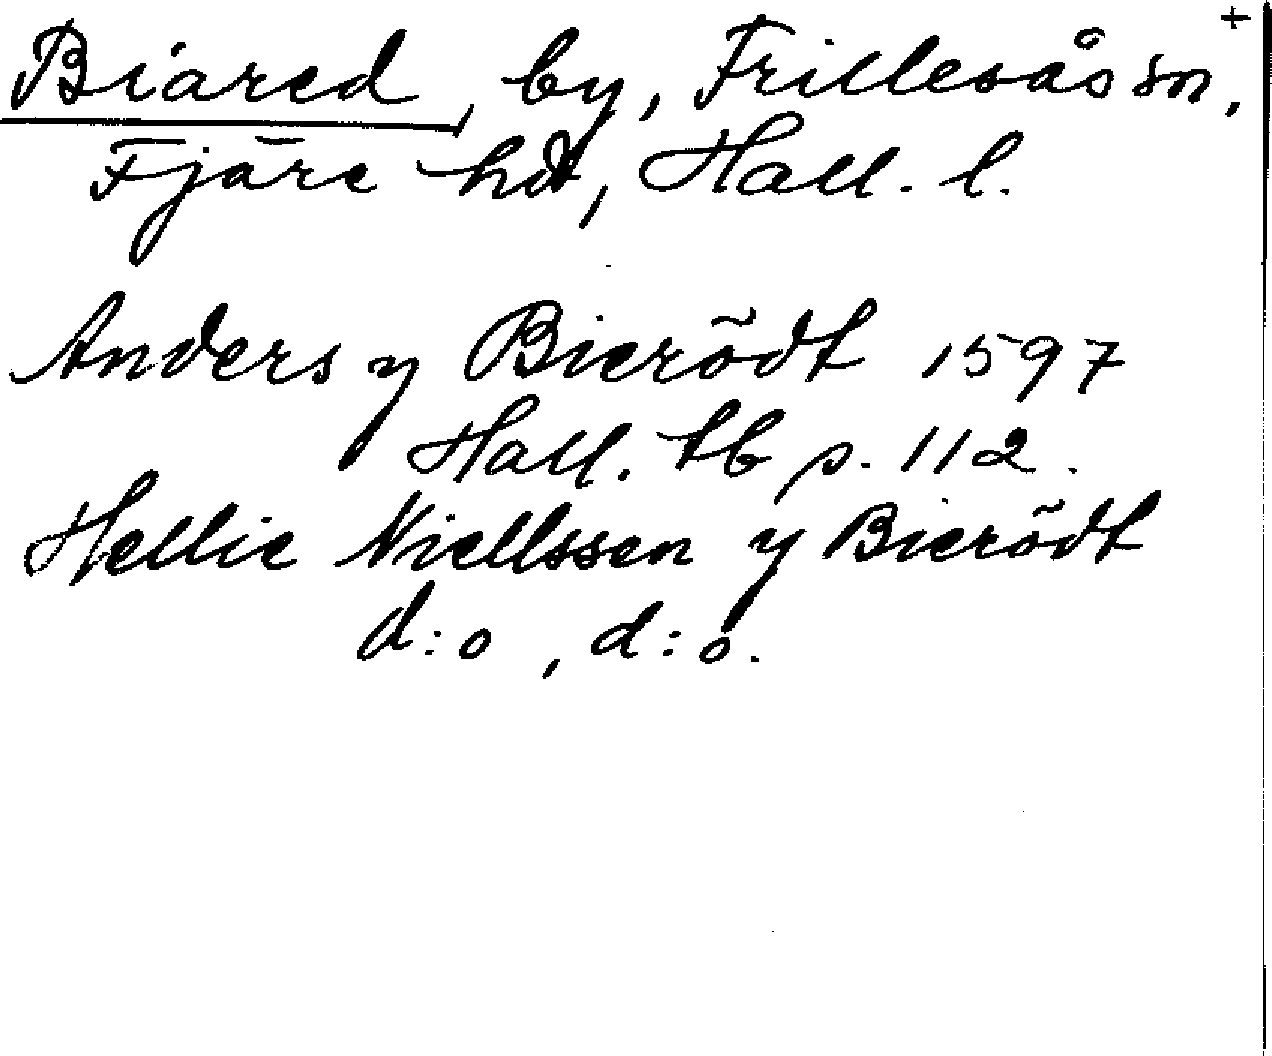 +
Biared, by, Frillesås sn,
Fjäre hd, Hall. l.
Anders y Bierödt 1597
Hall. tb p. 112.
Hellie Niellssen y Bierödt
d:o, d:o.